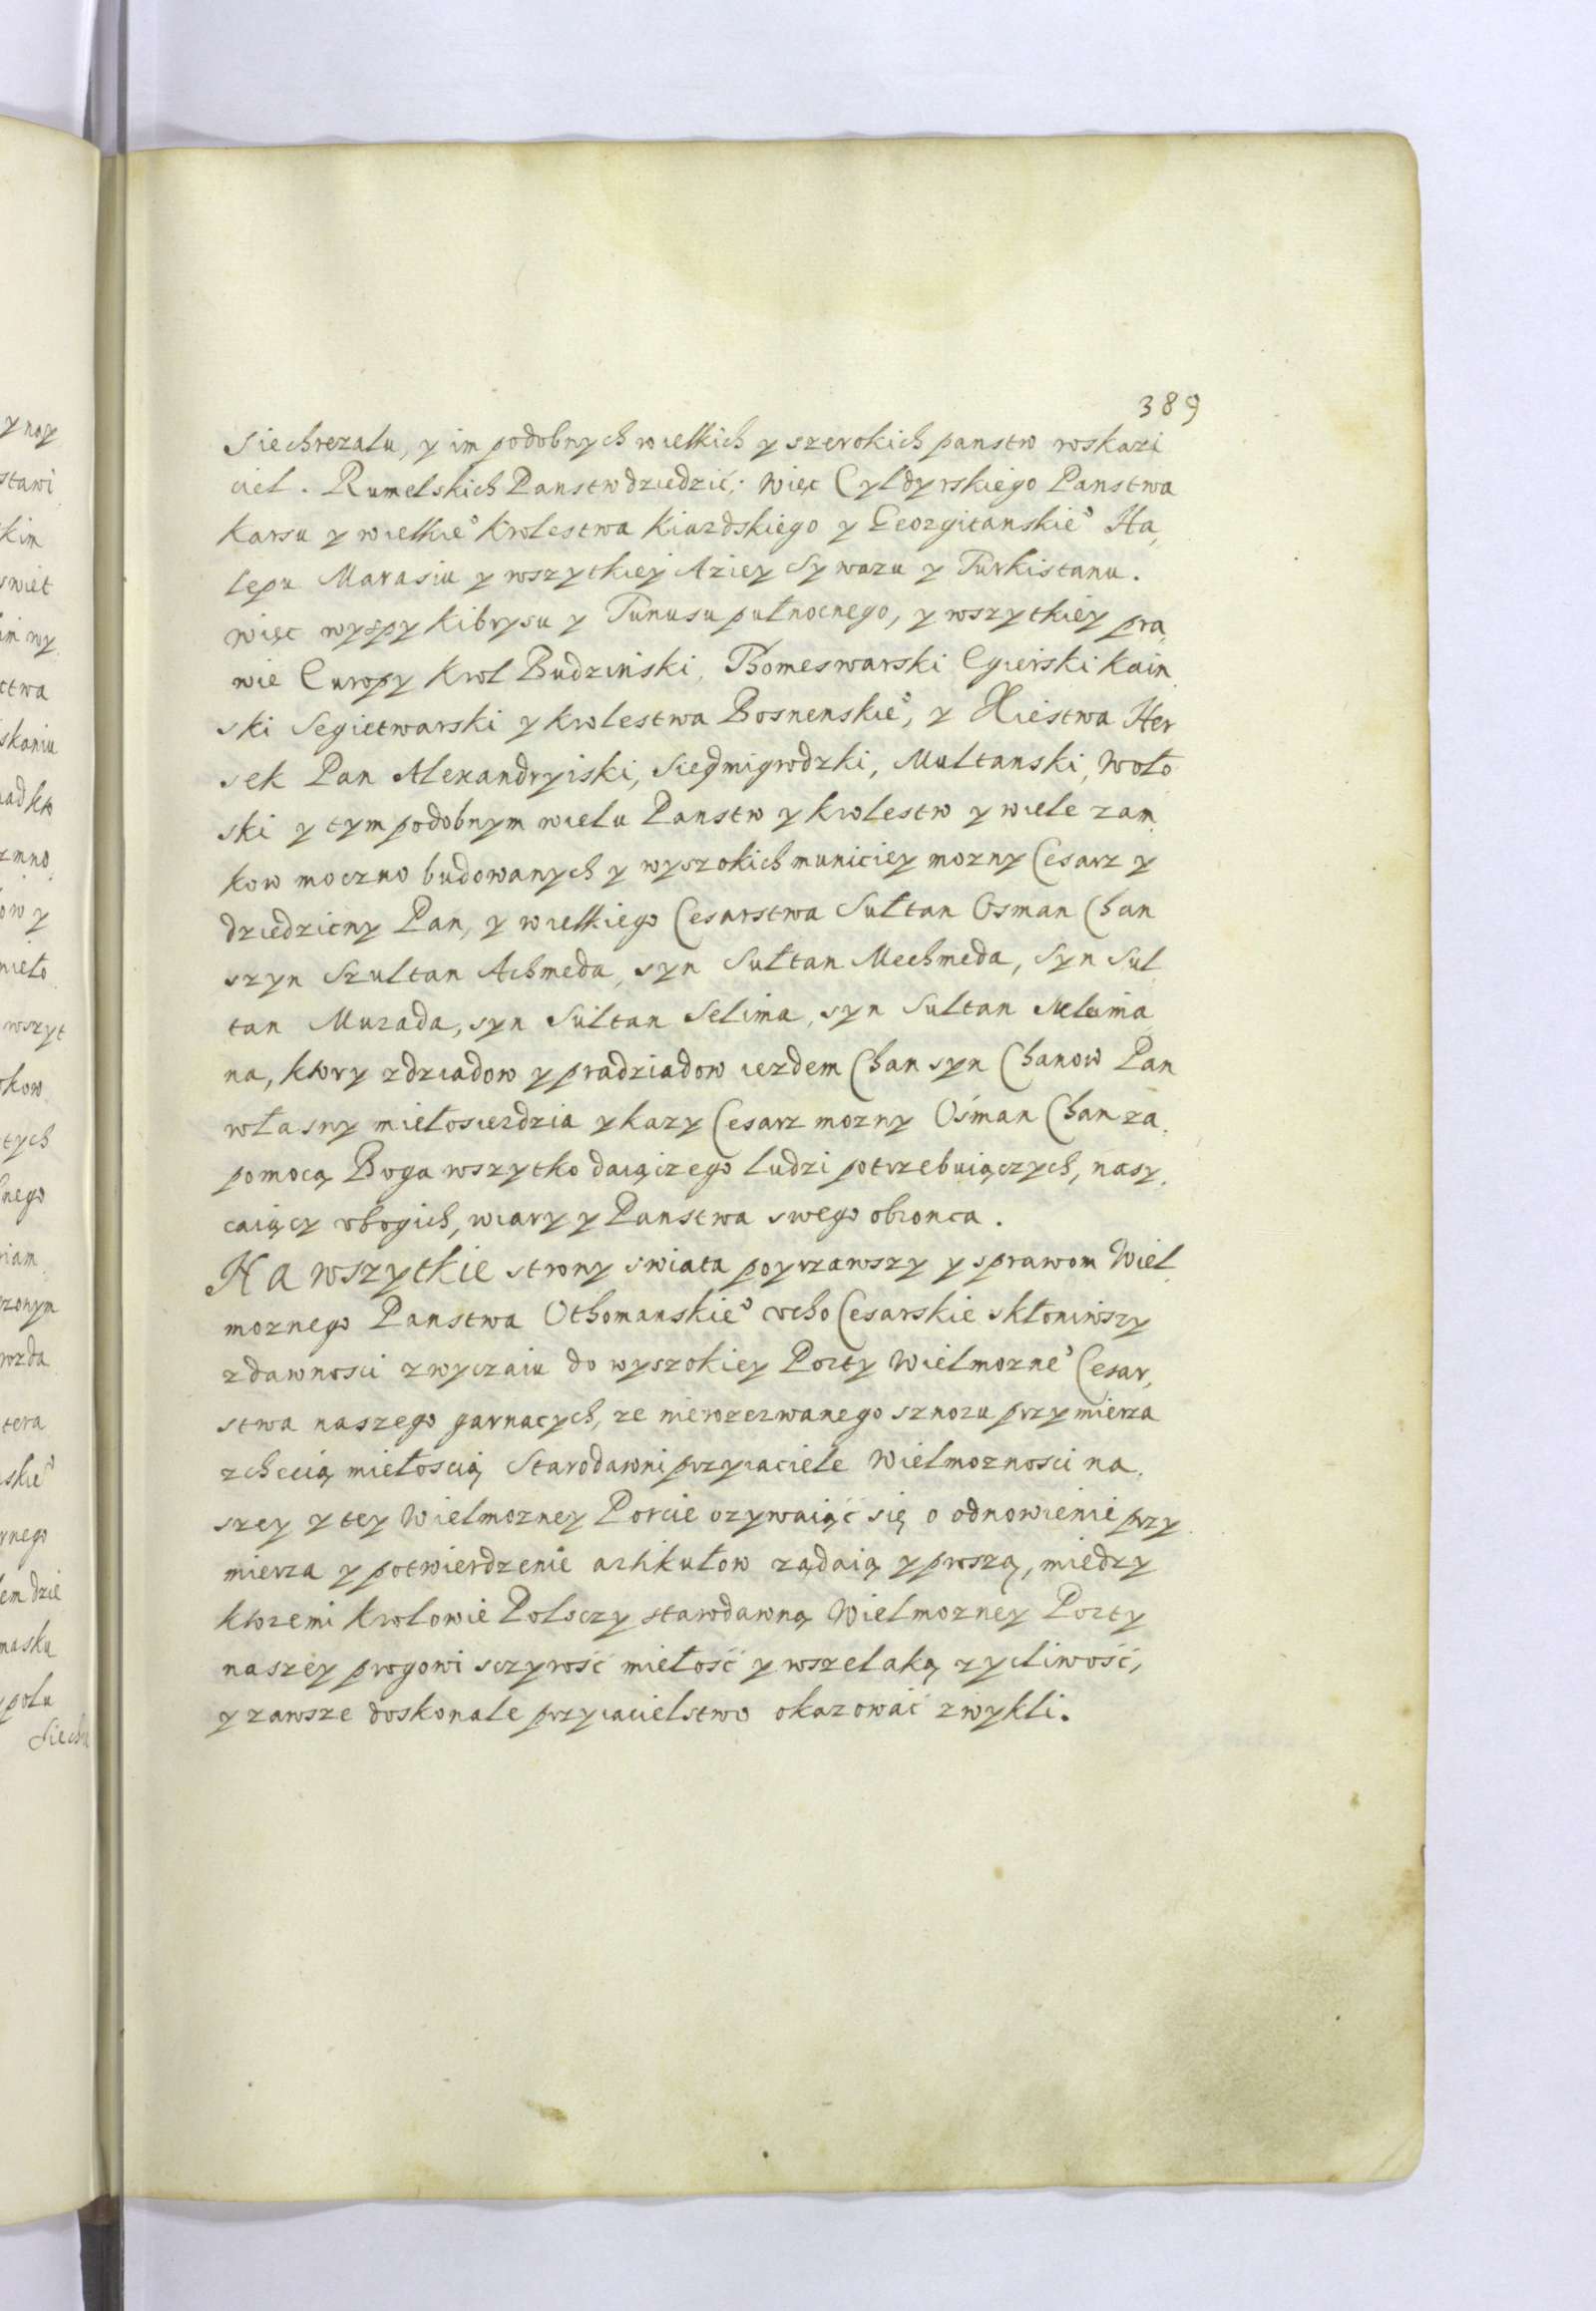 389
Siechrezalu, y im podobnych wielkich y szerokich panstw roskazi
ciel. Rumelskich Panstw dziedzić; Więc Cyldyrskiego Panstwa
Karsu y wielkie° Krolestwa Kiurdskiego y Georgitanskie° Ha,
lepu Marasiu y wszytkiey Aziey Sywazu y Turkistanu.
więc wyspy Kibrysu y Tunusu pułnocnego, y wszytkiey pra,
wie Europy Krol Budziński, Thomeswarski Egierski Kain
ski Segietwarski y Krolestwa Bosnenskie°, y Xiestwa Her
sek Pan Alexandryiski, Siedmigrodzki, Multanski, Woło
ski y tym podobnym wielu Panstw y Krolestw y wiele zam
kow moczno budowanych y wyszokich municiey mozny Cesarz y
dziedziczny Pan, y wielkiego Cesarstwa Sułtan Osman Chan
szyn Szultan Achmeda, syn Sułtan Mechmeda, Syn Sul
tan Murada, syn Sultan Selima, syn Sultan Suleima
na, ktory zdziadow y pradziadow iezdem Chan syn Chanow Pan
własny miełosierdzia y kazy Cesarz mozny Ośman Chan za
pomocą Boga wszytko daiączego ludzi potrzebuiączych, nasy,
caiący vbogich, wiary y Panstwa swego obronca.
Na wszytkie strony swiata poyrzawszy y sprawom Wiel
moznego Panstwa Othomanskie° vcho Cesarskie skłoniwszy
zdawnosci zwyczaiu do wyszokiey Porty Wielmozne° Cesar,
stwa naszego garnacych, ze nierozerwanego sznozu przymierza
zchecią miełoscią Starodawni przyiaciele Wielmoznosci na
szey y tey Wielmozney Porcie ozywaiąć się o odnowienie przy
mierza y potwierdzenie artikułow ządaią y proszą, miedzy
ktoremi Krolowie Poloczy starodawną Wielmozney Porty
naszey progowi sczyrość miełość y wszelaką zycliwość,
y zawsze doskonale przyiacielstwo okazować zwykli.